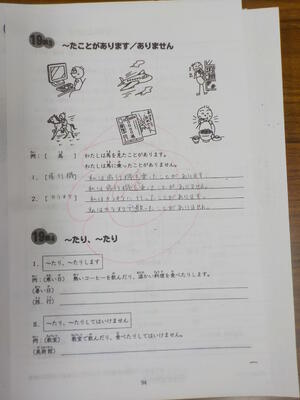 19
～たことがあります／ありません
例：［ 馬 ］ わたしは馬を見たことがあります。
わたしは馬に乗ったことがありません。
1．［飛行機］ 私は飛行機を乗ったことがあります。
私は飛行機を乗ったことがありません。
2．［カラオケ］ 私はカラオケに行ったことがあります。
私はカラオケで歌ったことがありません。
19
～たり、～たり
Ⅰ．
～たり、～たりします
例：（寒い日） 熱いコーヒーを飲んだり、温かい料理を食べたりします。
（暑い日）
（旅 行）
Ⅱ．
～たり、～たりしてはいけません
例：（教室） 教室で飲んだり、食べたりしてはいけません。
（美術館）
94